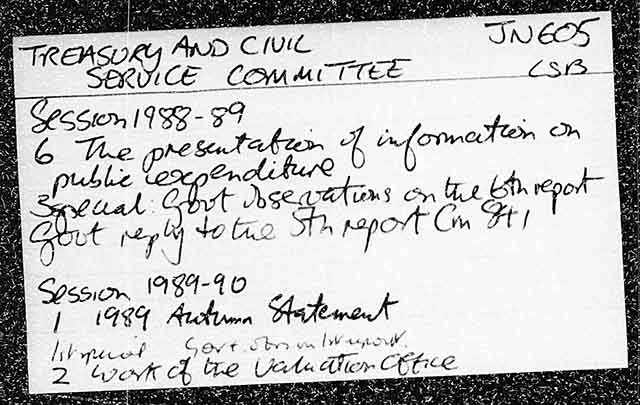 TREASURY AND CIVIL JN605
SERVICE COMMITTEE LSB
Session 1988-89
6 The presentation of information on
public expenditure
3 special: Govt observations on the 6th report
Govt reply to the 5th report Cm 841
Session 1989-90
1 1989 Autumn Statement
1st special Govt. obsn on 1st report.
2 Work of the Valuation Office